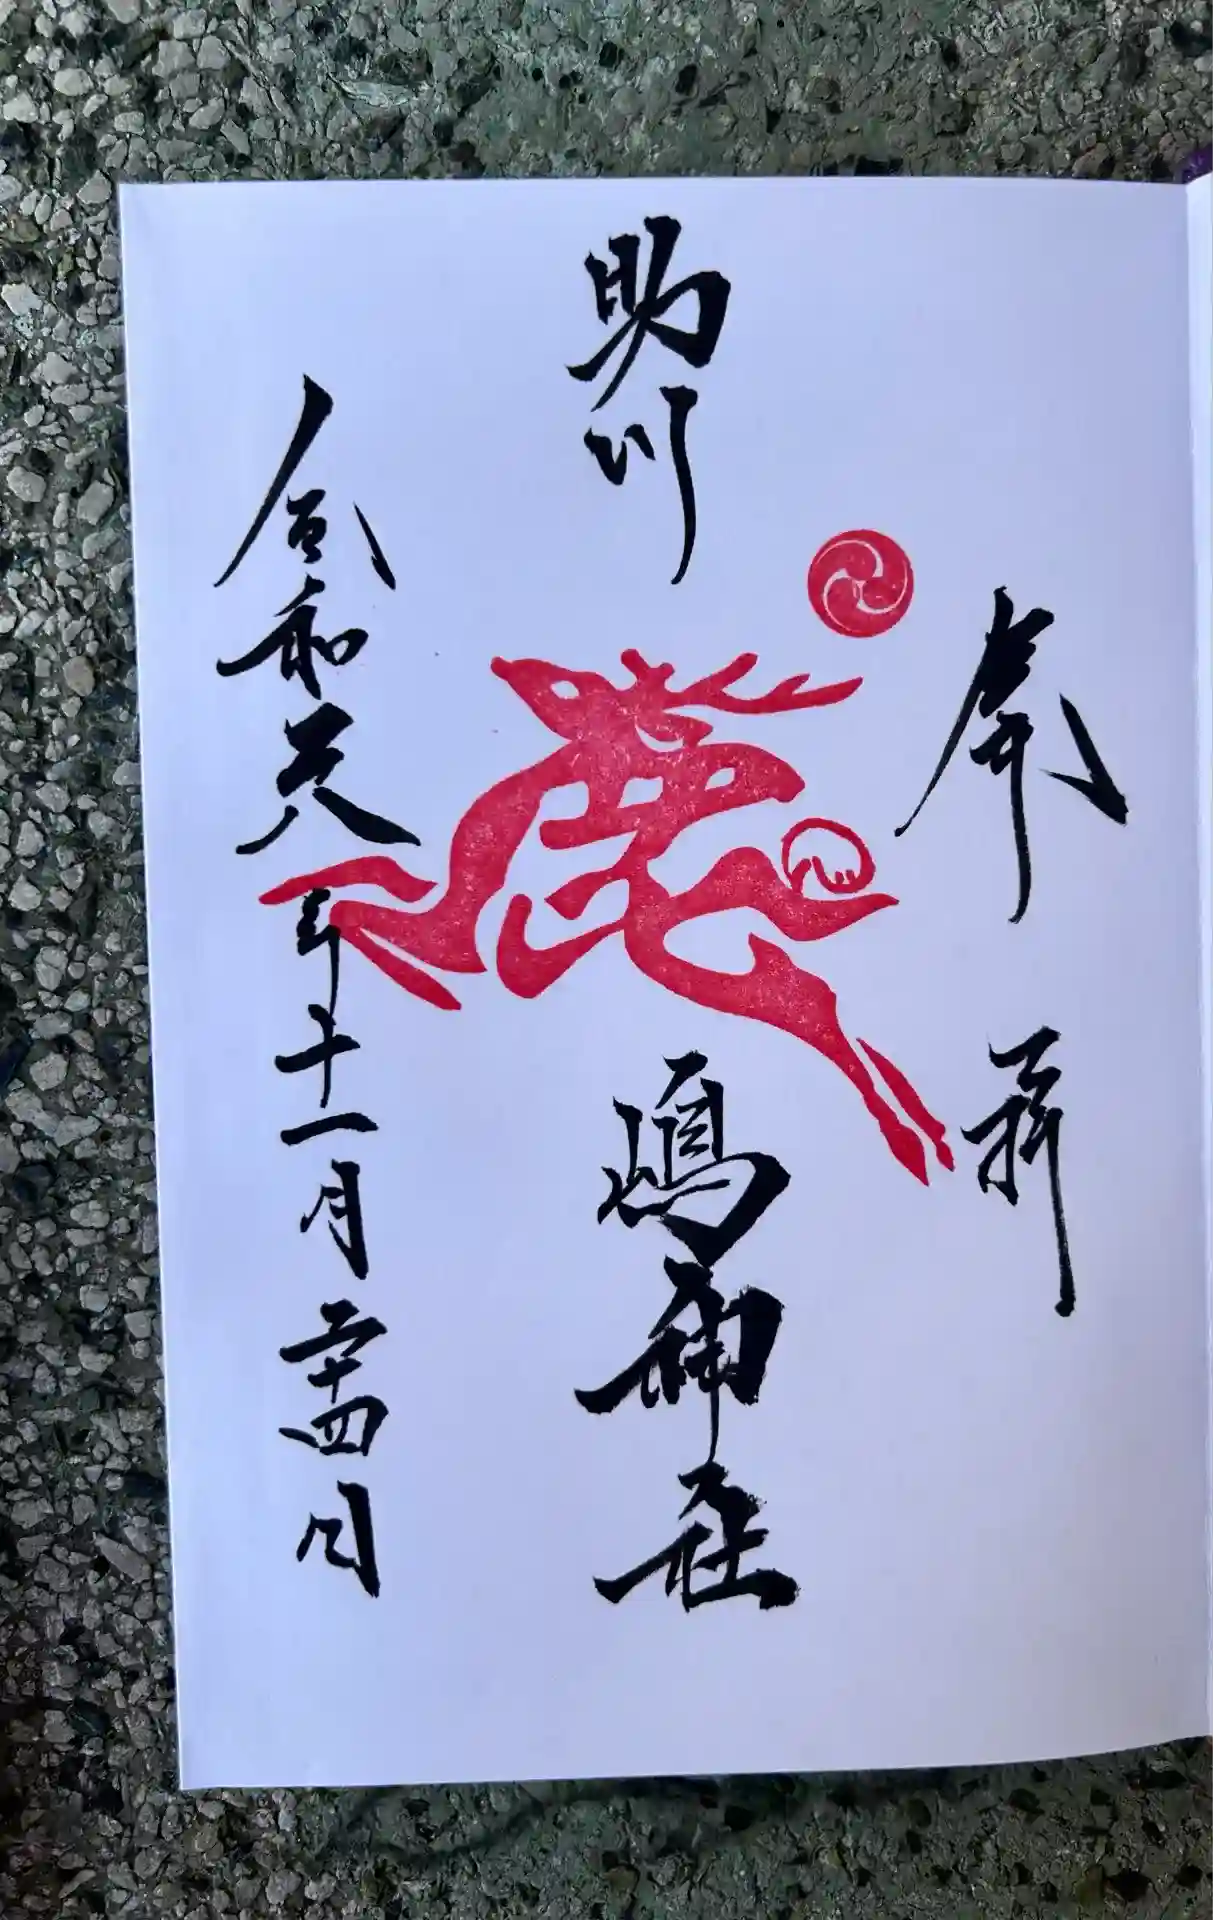 奉拝
助川鹿嶋神社
令和六年十一月二十四日